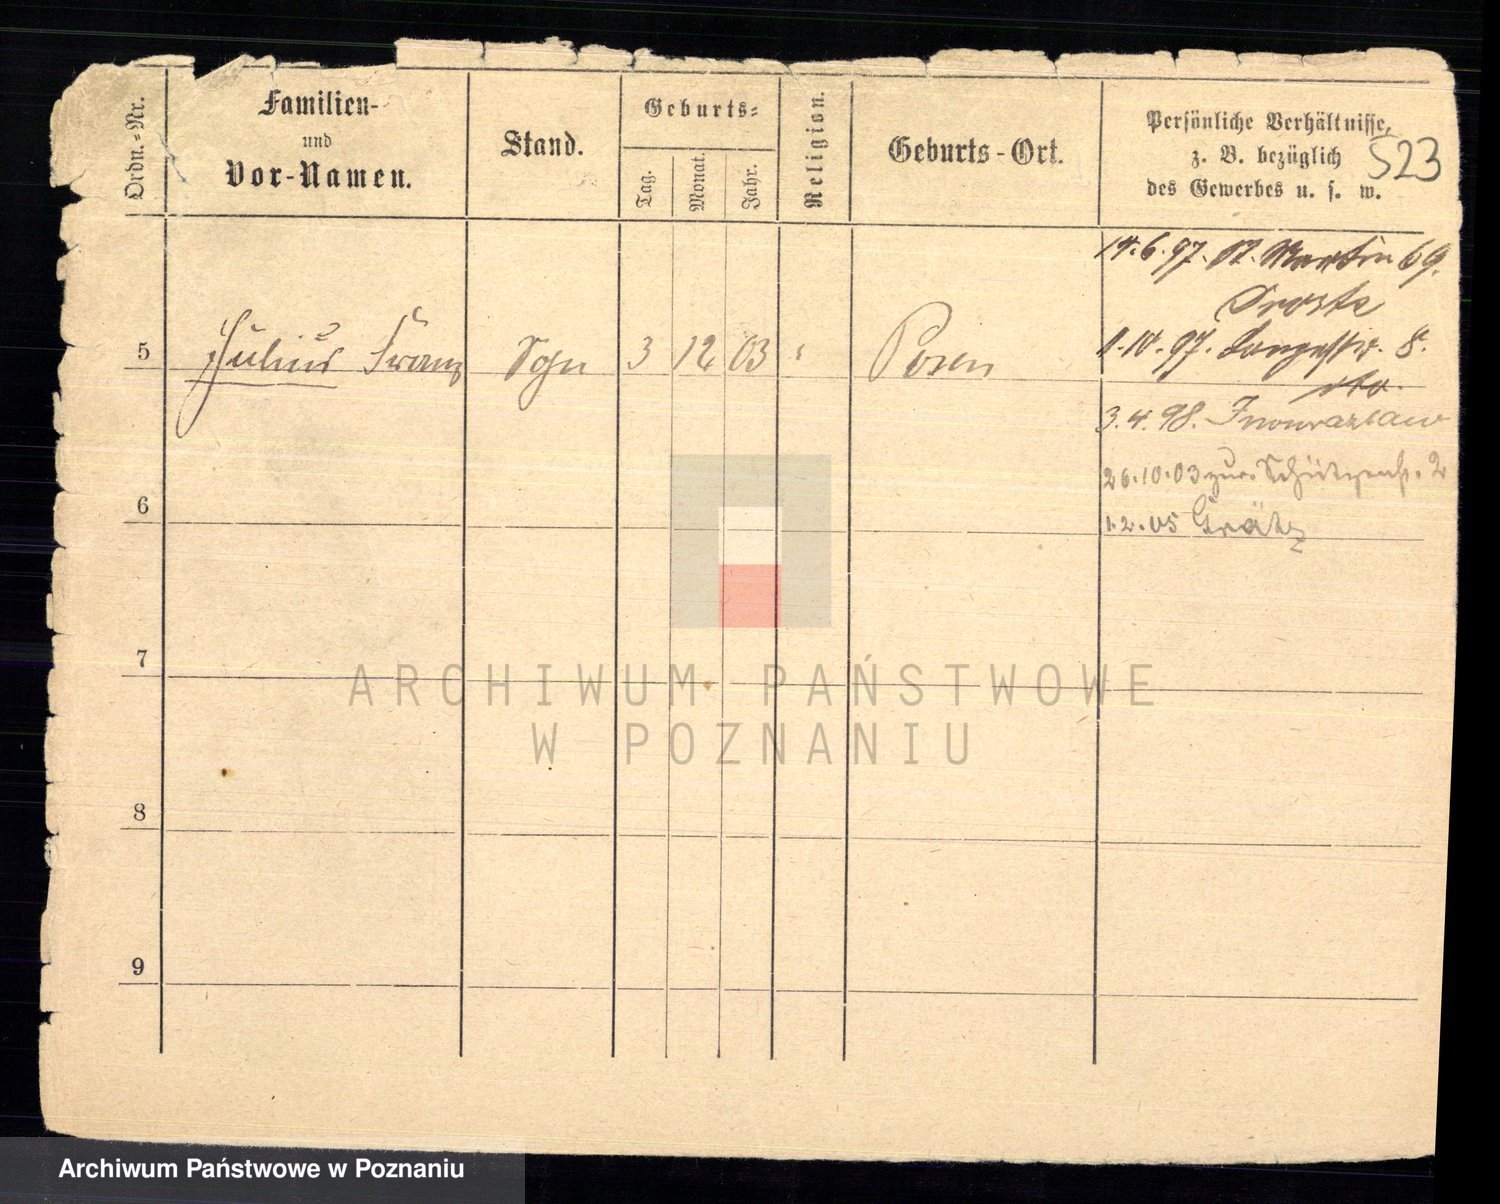 Ordn.-Nr.
Familien-
und
Vor-Namen.
Stand.
Geburts-
Tag.
Monat.
Jahr.
Religion.
Geburts-Ort.
Persönliche Verhältnisse,
z. B. bezüglich
des Gewerbes u. s. w.
523
14.6.97. St. Martin 69.
Droste
1.10.97. Langestr. 8.
5 Julius Franz Sgn 3 12 03 Posen
3.4.98. Inowrazlaw
26.10.03 zur. Schützenstr. 2
6
1.2.05 Grätz
7
ARCHIWUM PAŃSTWOWE
W POZNANIU
8
9
Archiwum Państwowe w Poznaniu